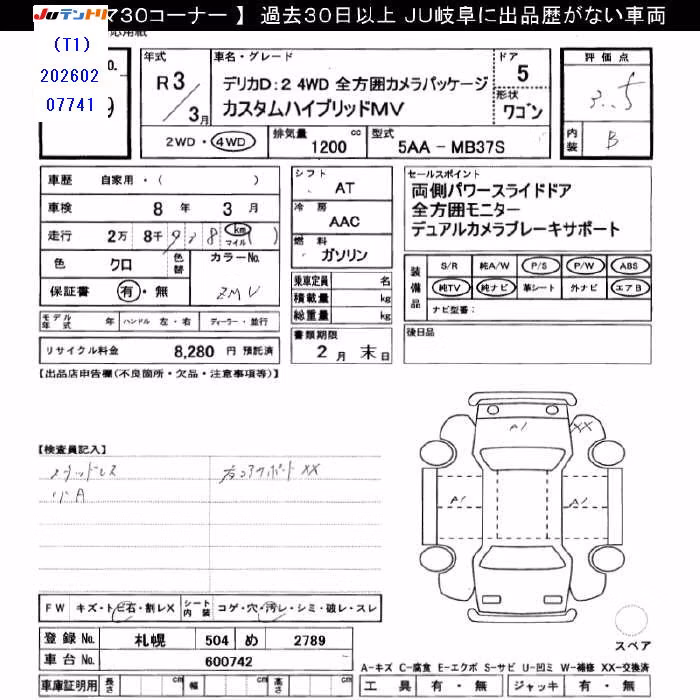 JUテントリ 730コーナー 】 過去30日以上 JU岐阜に出品歴がない車両
(T1)
202602
07741
年式 R3/3月
車名・グレード
デリカD:2 4WD 全方囲カメラパッケージ
カスタムハイブリッドMV
ドア 5
形状 ワゴン
評価点 3.5
内装 B
2WD・4WD 排気量 1200 cc 型式 5AA - MB37S
車歴 自家用・( )
車検 8年 3月
走行 2万 8千 928 km マイル ( )
色 クロ 色替 カラーNo.
保証書 有・無 ZMV
モデル年式 年 ハンドル 左・右 ディーラー・並行
リサイクル料金 8,280 円 預託済
シフト AT
冷房 AAC
燃料 ガソリン
乗車定員 名
積載量 kg
総重量 kg
書類期限
2月 末日
セールスポイント
両側パワースライドドア
全方囲モニター
デュアルカメラブレーキサポート
装備品 S/R 純A/W P/S P/W ABS
純TV 純ナビ 革シート 外ナビ エアB
ナビ型番:
後日品
【出品店申告欄(不良箇所・欠品・注意事項等)】
【検査員記入】
XX
小A
A1 XX
A1 A1
FW キズ・トビ石・割レX シート内装 コゲ・穴・汚レ・シミ・破レ・スレ
登録No. 札幌 504 め 2789
車台No. 600742
車庫証明用 長さ cm 幅 cm 高さ cm
スペア
A-キズ C-腐食 E-エクボ S-サビ U-凹ミ W-補修 XX-交換済
工具 有・無 ジャッキ 有・無